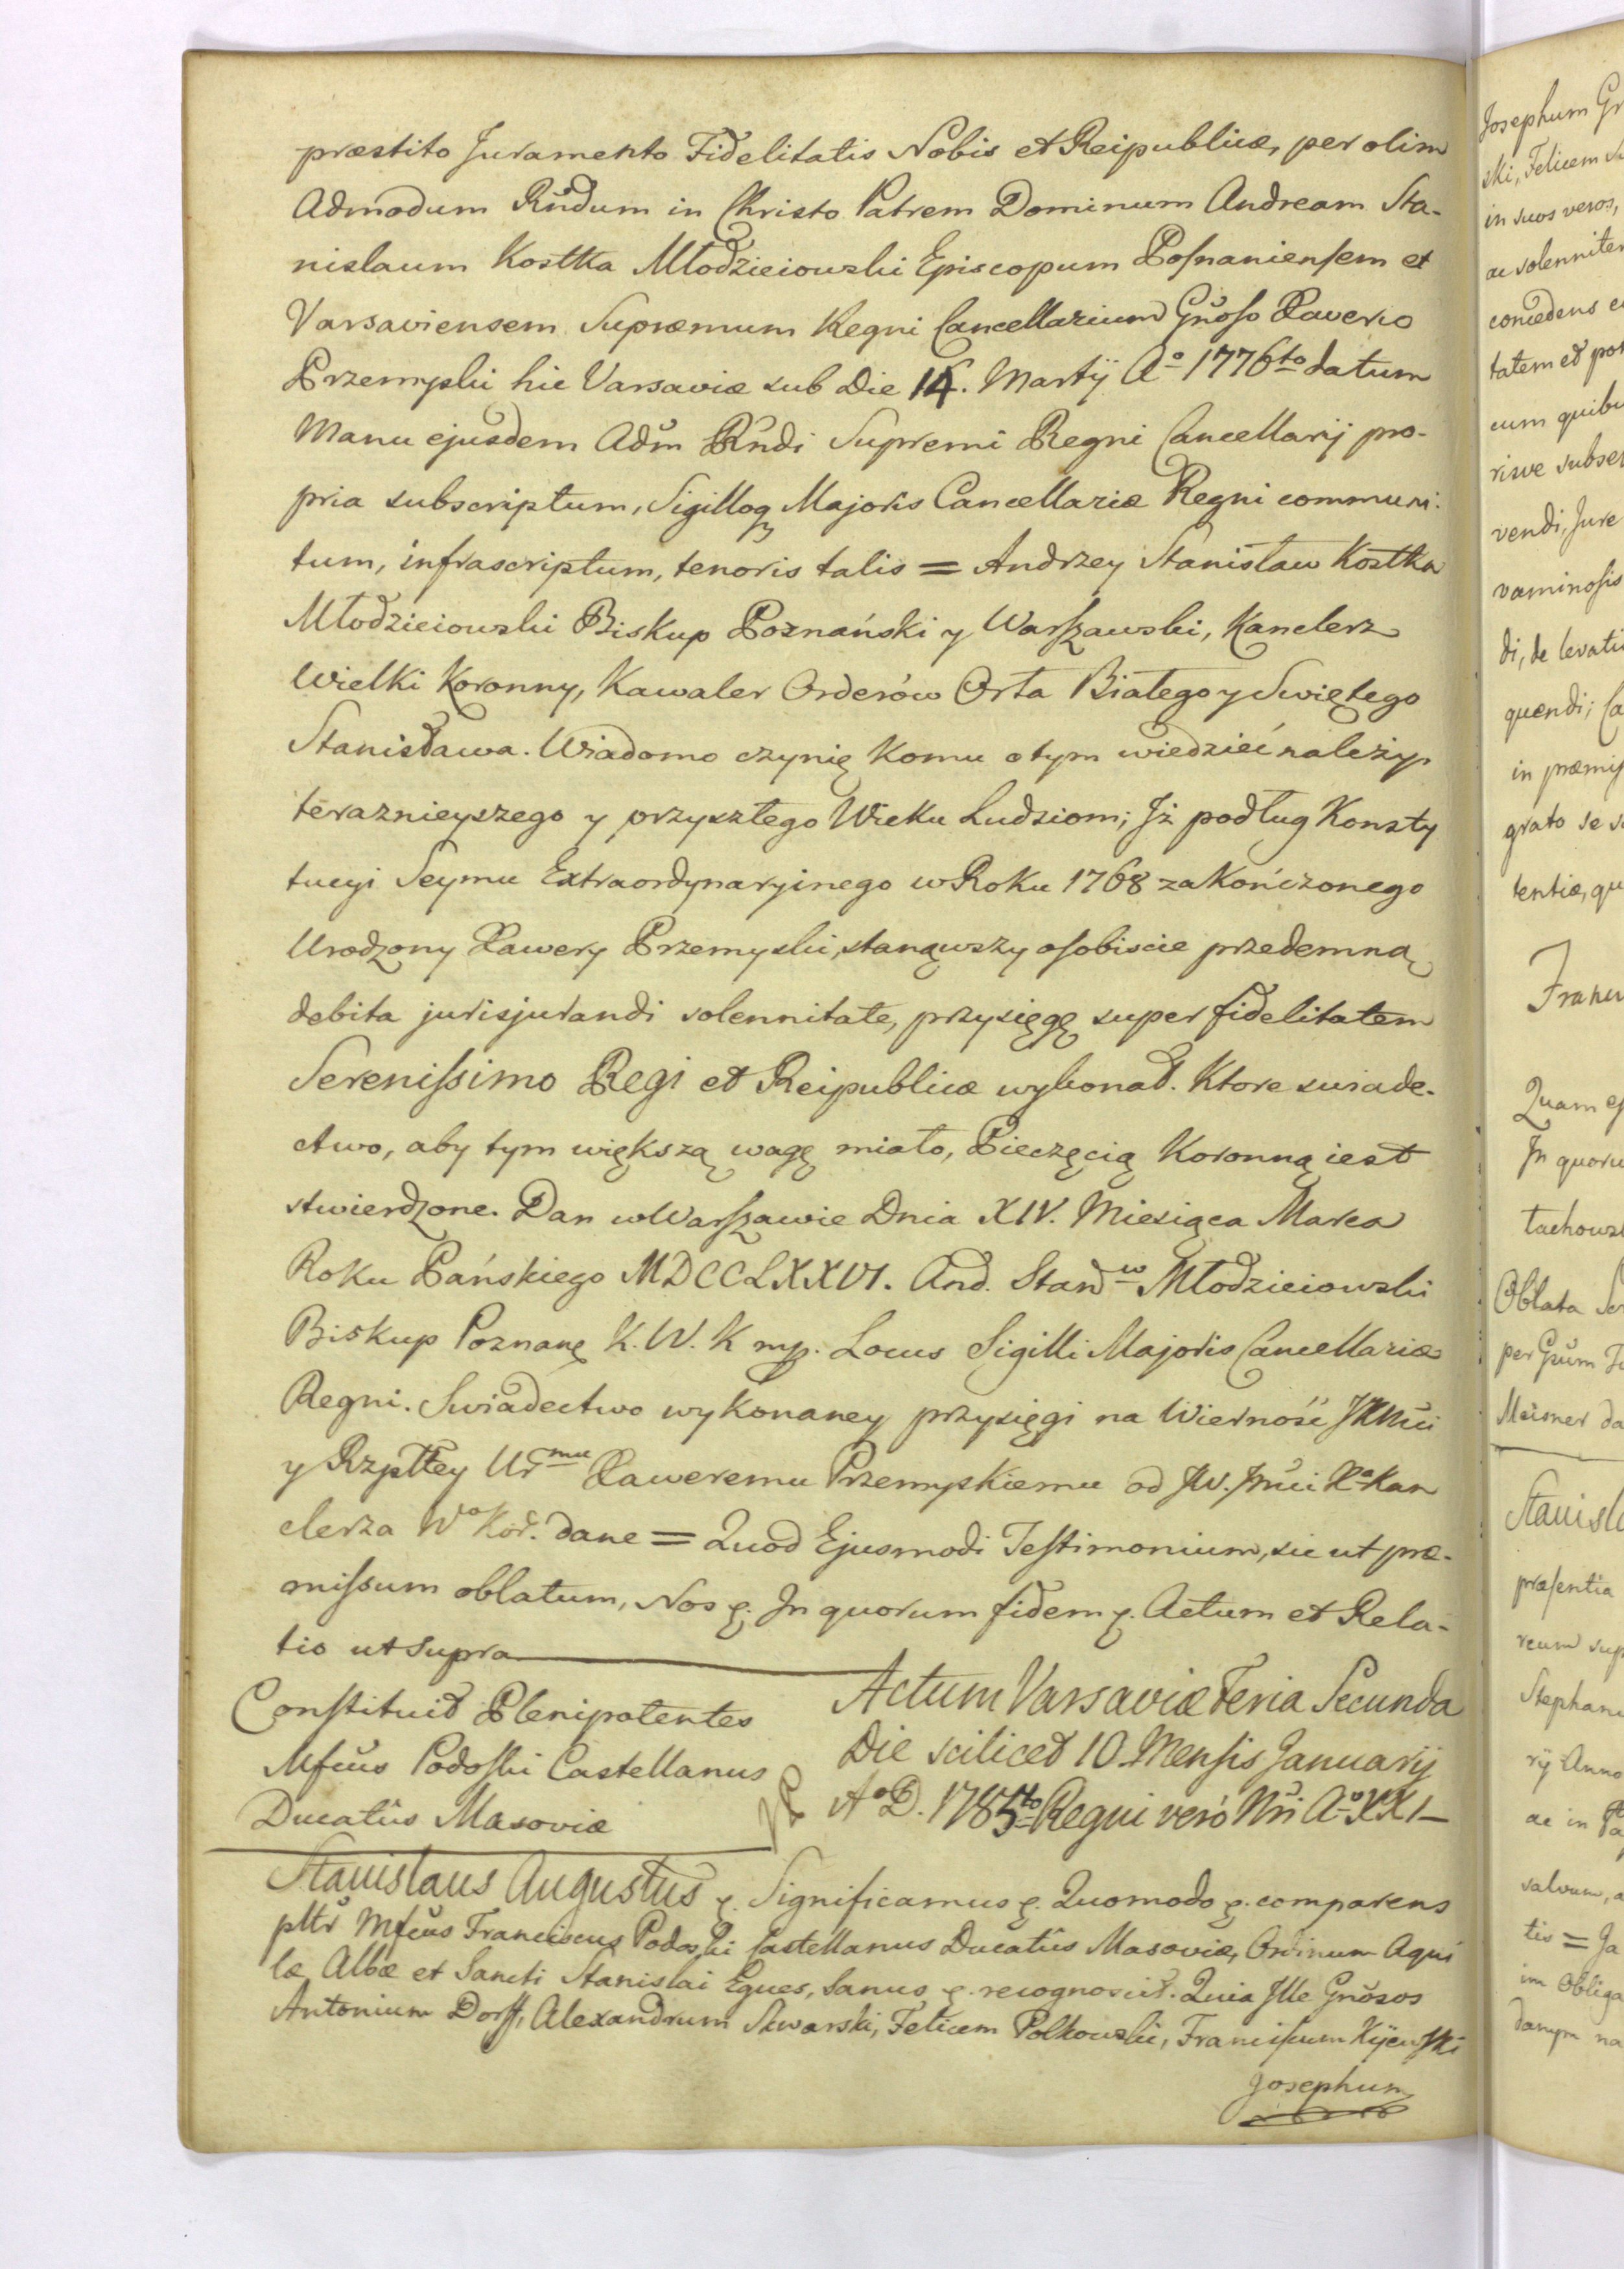 præstito Juramento Fidelitatis Nobis et Reipublicæ, per olim
Admodum Rñdum in Christo Patrem Dominum Andream Sta-
nislaum Kostka Młodzieiowski Episcopum Posnaniensem et
Varsaviensem Supræmum Regni Cancellarium Gñoso Xaverio
Przemyski hic Varsaviæ sub Die 14. Martij Aº 1776to datum
Manu ejusdem Adm̃ Rñdi Supremi Regni Cancellarij pro-
pria subscriptum, Sigilloq Majoris Cancellariæ Regni communi-
tum, infrascriptum, tenoris talis = Andrzey Stanisław Kostka
Młodzieiowski Biskup Poznański y Warszawski, Kanclerz
Wielki Koronny, Kawaler Orderów Orła Białego y Swiętego
Stanisława. Wiadomo czynię komu o tym wiedzieć należy,
teraznieyszego y przyszłego Wieku Ludziom; Jż podług Konsty
tucyi Seymu Extraordynaryinego w Roku 1768 zakończonego
Urodzony Xawery Przemyski, stanąwszy osobiscie przedemną
debita jurisjurandi solennitate, przysięgę super fidelitatem
Serenissimo Regi et Reipublicæ wykonał. Ktore swiade-
ctwo, aby tym większą wagę miało, Pieczęcią Koronną iest
stwierdzone. Dan w Warszawie Dnia XIV. Miesiąca Marca
Roku Pańskiego MDCCLXXVI. And. Stanw Młodzieiowski
Biskup Poznan K. W. K mp. Locus Sigilli Majoris Cancellariæ
Regni. Swiadectwo wykonaney przysięgi na Wierność JKMci
y Rzpltey Urmu Xaweremu Przemyskiemu od JW. Jmci Xa Kan
clerza Wº Kor. dane = Quod Ejusmodi Testimonium, sic ut præ-
missum oblatum, Nos p. In quorum fidem p. Actum et Rela-
tio ut supra
Actum Varsaviæ Feria Secunda
Die scilicet 10. Mensis Januarij
Aº D. 1785to Regni veró Nr̃i Aº XXI
Constituit Plenipotentes
Mfcus Podoski Castellanus
Ducatûs Masoviæ
Stanislaus Augustus p. Significamus p. Quomodo p. comparens
pltr Mfcus Franciscus Podoski Castellanus Ducatûs Masoviæ, Ordinum Aqui
læ Albæ et Sancti Stanislai Eques, sanus p. recognoscit. Quia Ille Gñosos
Antonium Dorff, Alexandrum Skwarski, Felicem Polkowski, Franciscum Kijewski
Josephum
Josephum Gr
ski, Felicem
in suos veros,
ac solenniter
concedens
tatem et
cum quibu
risve subse
vendi, Jure
vaminosis
di, de levati
quendi; Ca
in præmis
grato se
tentiæ, qu
Quam
In quoru
tachows
Oblata
per Gñum
Meisner da
Stanisla
præsentia
reum sup
Stephan
rij Anno
ac in
salvum, a
tis = Ja
im obliga
danym na